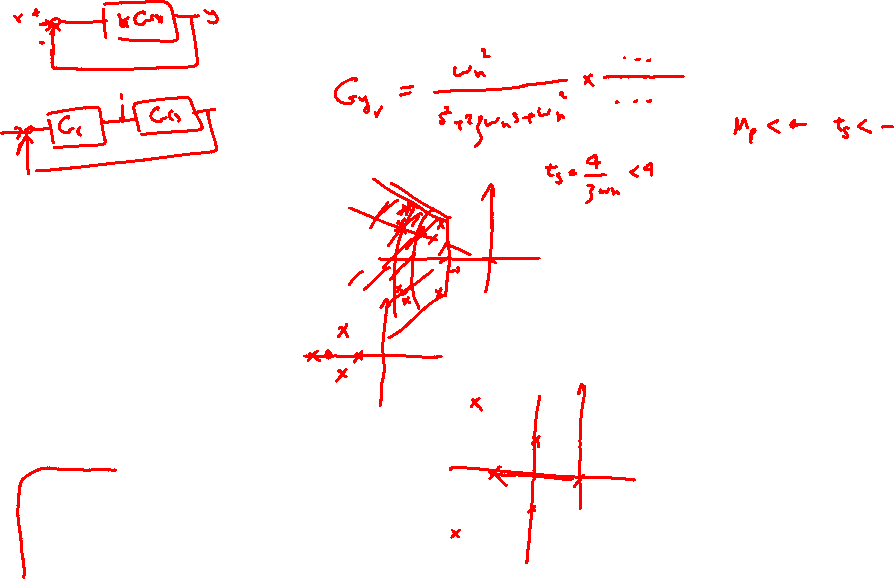 r + KG(s) y
-
G_c G(s)
G_yr = ωn² / (s² + 2ζωn s + ωn²) × ... / ...
Mp < ← ts < –
ts = 4 / ζωn < 4